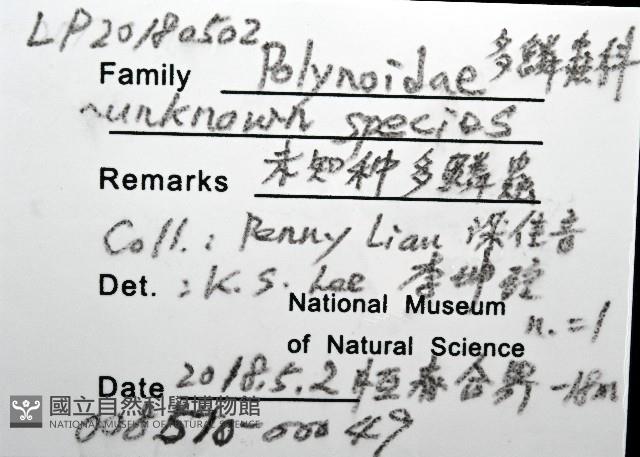 LP20180502
Family Polynoidae 多鱗蟲科
~unknown species
Remarks 未知种多鱗蟲
Coll.: Penny Liau 佳音
Det.: K. S. Lee 李坤瑄
National Museum
n.=1
of Natural Science
Date 2018.5.2 恒春合界 -18m
國立自然科學博物館
NATIONAL MUSEUM OF NATURAL SCIENCE
00049